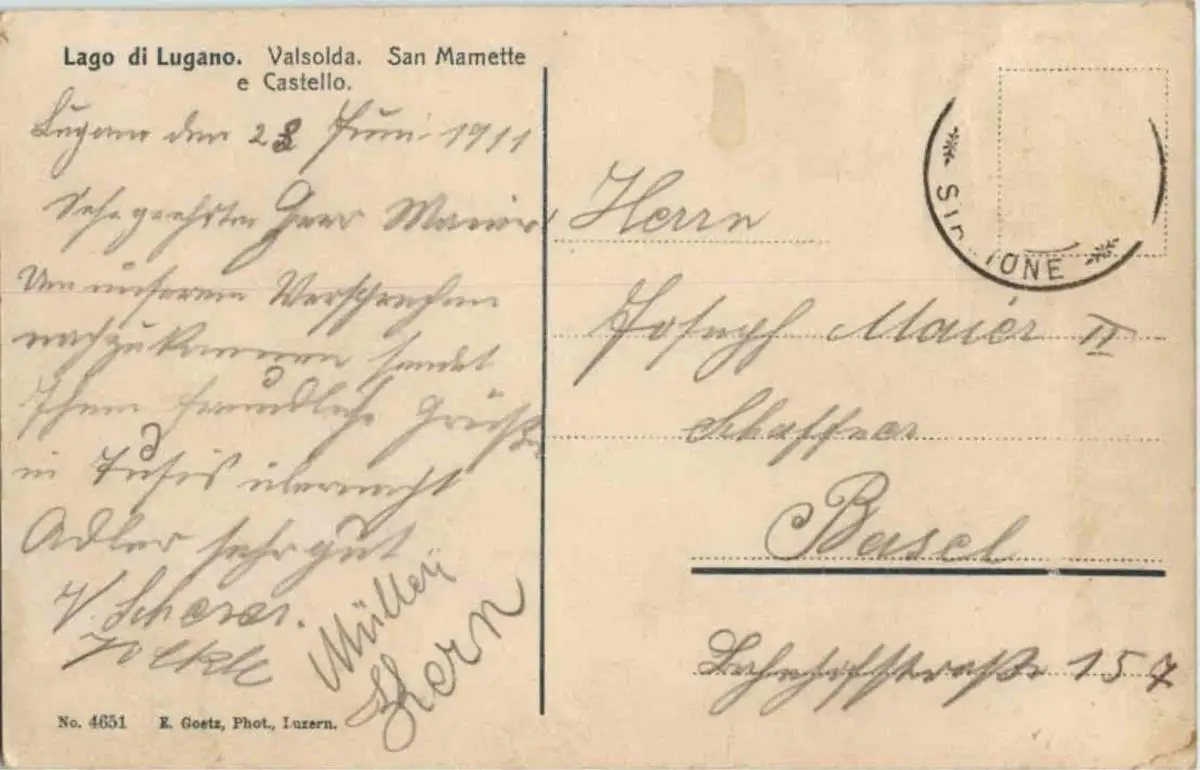 Lago di Lugano. Valsolda. San Mamette
e Castello.
Lugano den 28 Juni 1911
Sehr geehrter Herr Maier
Um unserem Versprechen
nachzukommen sendet
Ihnen freundliche Grüße
in Tusis übernacht
Adler sehr gut
V. Scherer.
Müller
Kern
No. 4651 E. Goetz, Phot., Luzern.
Herrn
Joseph Maier II
Schaffner
Basel
Bahnhofstraße 157